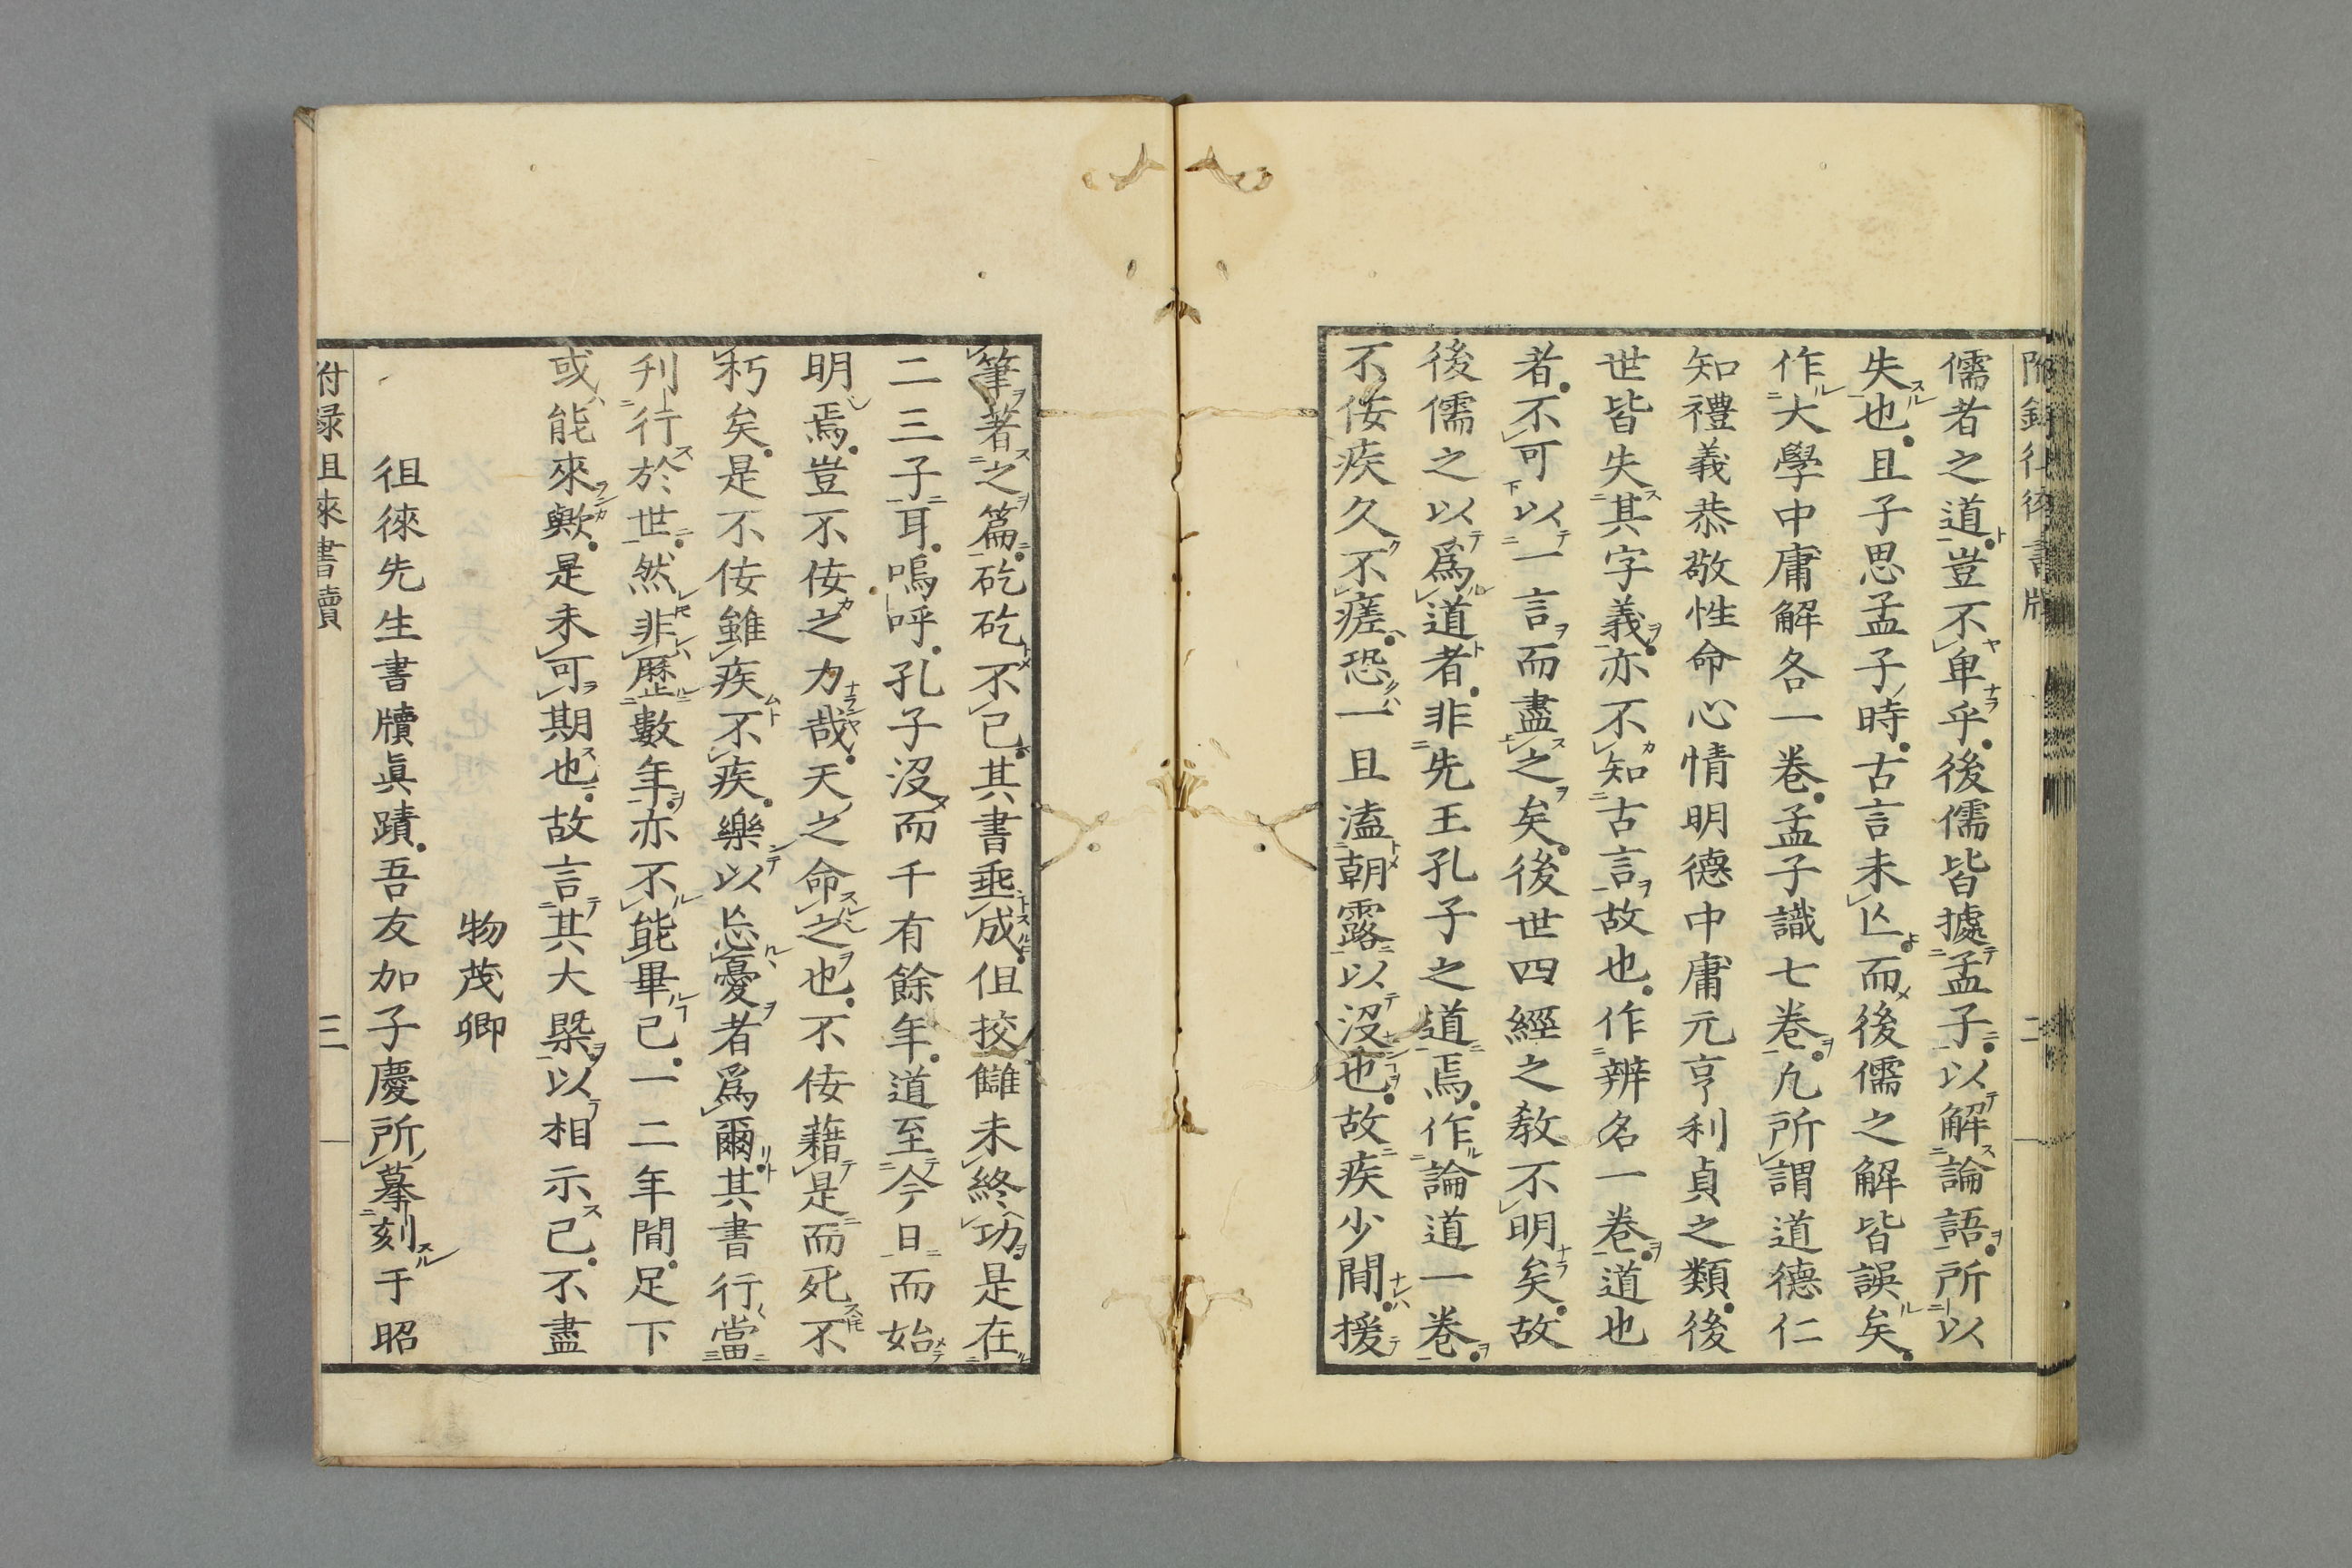 附錄徂徠書牘 二
儒者之道豈不卑乎後儒皆據孟子以解論語所以
失也且子思孟子時古言未亾而後儒之解皆誤矣
作大學中庸解各一卷孟子識七卷凢所謂道德仁
知禮義恭敬性命心情明德中庸元亨利貞之類後
世皆失其字義亦不知古言故也作辨名一卷道也
者不可以一言而盡之矣後世四經之敎不明矣故
後儒之以爲道者非先王孔子之道焉作論道一卷
不佞疾久不瘥恐一旦溘朝露以沒也故疾少間援
筆著之篇矻矻不已其書垂成但挍讎未終功是在
二三子耳嗚呼孔子沒而千有餘年道至今日而始
明焉豈不佞之力哉天之命之也不佞藉是而死不
朽矣是不佞雖疾不疾樂以忘憂者爲爾其書行當
刋行於世然非歷數年亦不能畢已一二年間足下
或能來歟是未可期也故言其大槩以相示已不盡
物茂卿
徂徠先生書牘眞蹟吾友加子慶所摹刻于昭
附録徂徠書牘 三